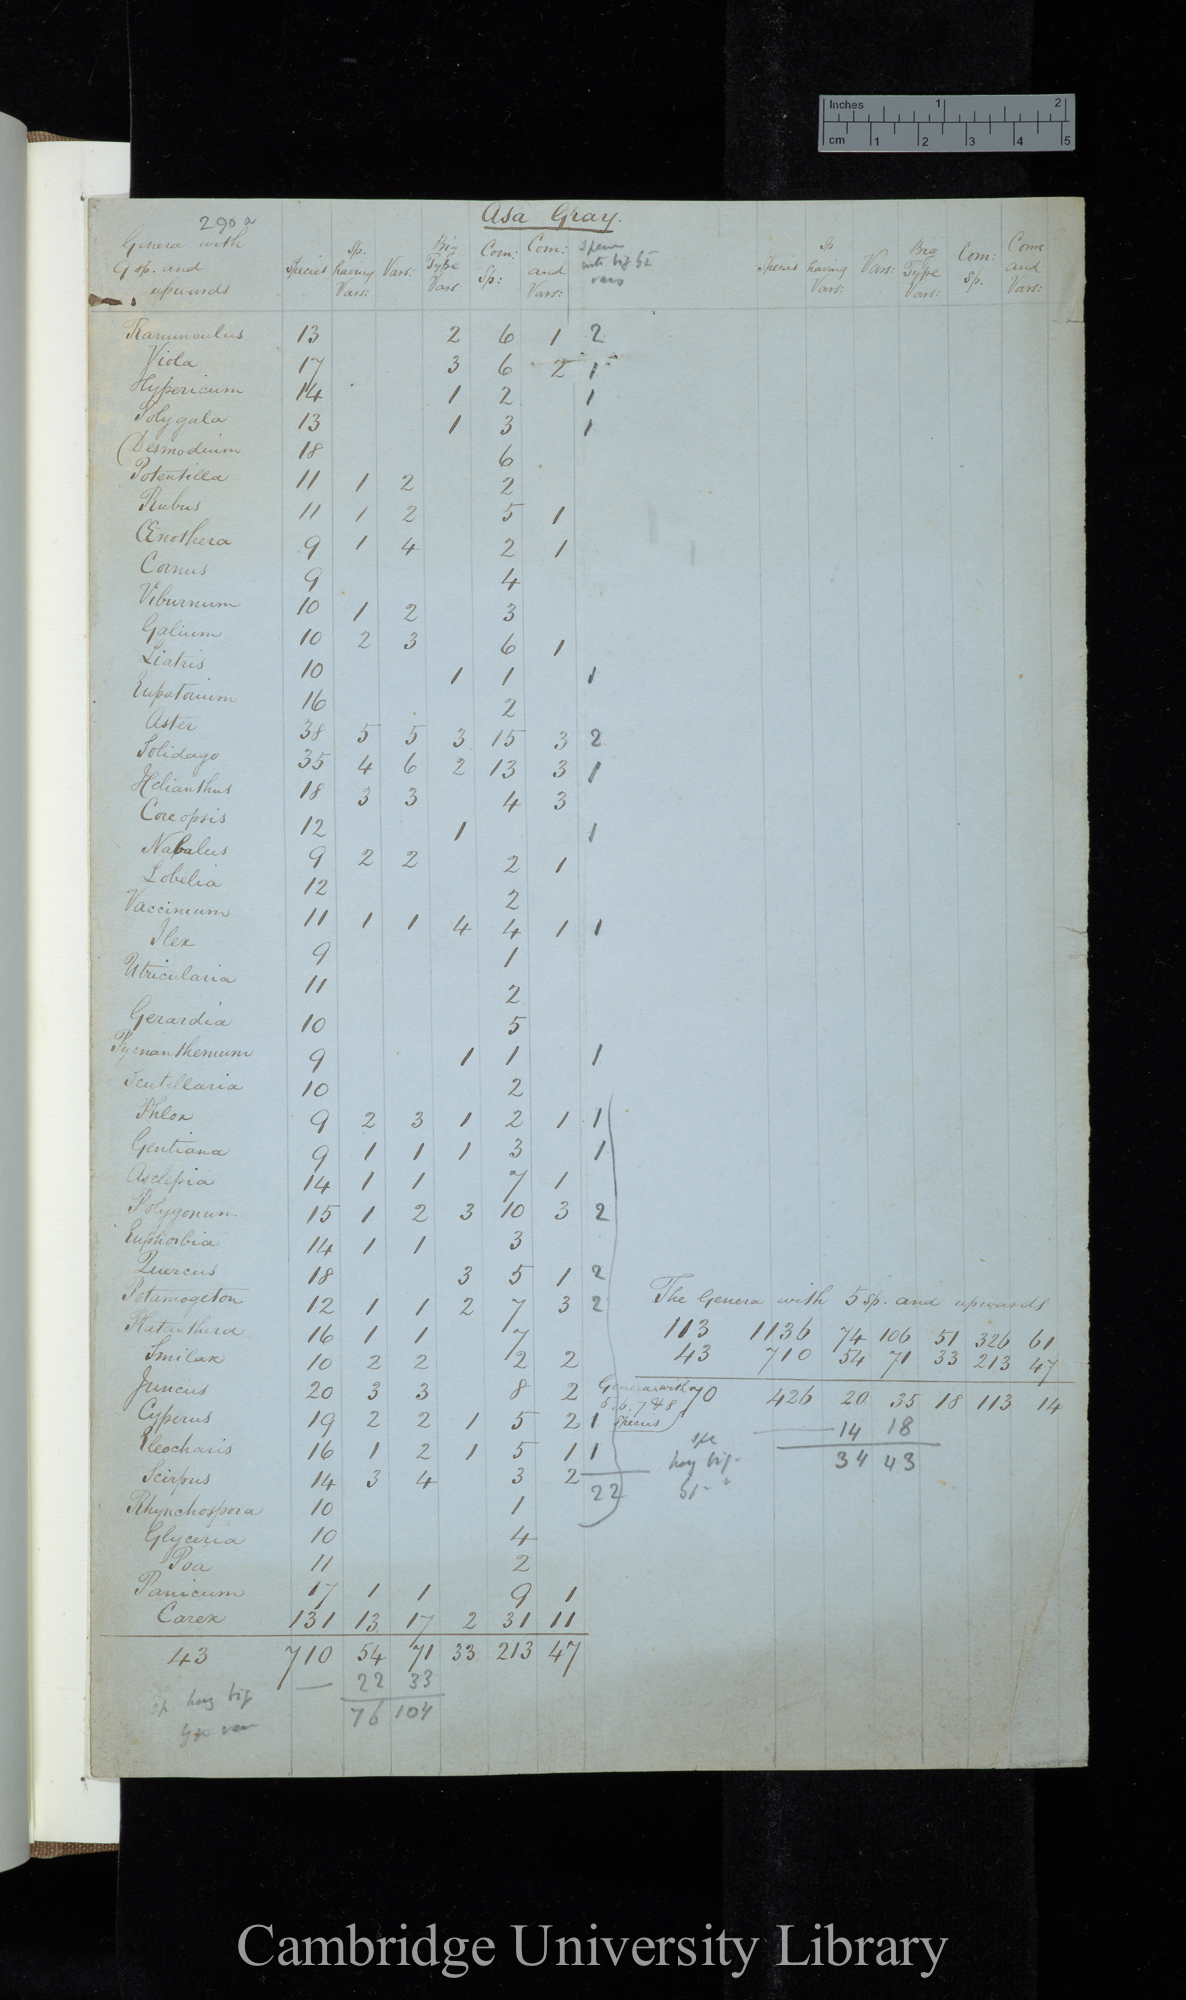 Inches 1 2
cm 1 2 3 4 5
290a
Asa Gray.
Genera with 9 sp. and upwards | Species | Sp. having Vars: | Vars: | Big Type Vars: | Com: Sp: | Com: and Vars: | species with big type vars
Species | Sp having Vars: | Vars: | Big Type Vars: | Com: Sp. | Come and Vars:
Ranunculus 13 2 6 1 2
Viola 17 3 6 2 1
Hypericum 14 1 2 1
Polygala 13 1 3 1
(Desmodium 18 6
Potentilla 11 1 2 2
Rubus 11 1 2 5 1
Œnothera 9 1 4 2 1
Cornus 9 4
Viburnum 10 1 2 3
Galium 10 2 3 6 1
Liatris 10 1 1 1
Eupatorium 16 2
Aster 38 5 5 3 15 3 2
Solidago 35 4 6 2 13 3 1
Helianthus 18 3 3 4 3
Coreopsis 12 1 1
Nabalus 9 2 2 2 1
Lobelia 12 2
Vaccinium 11 1 1 4 4 1 1
Ilex 9 1
Utricularia 11 2
Gerardia 10 5
Pycnanthemum 9 1 1 1
Scutellaria 10 2
Phlox 9 2 3 1 2 1 1
Gentiana 9 1 1 1 3 1
Asclepia 14 1 1 7 1
Polygonum 15 1 2 3 10 3 2
Euphorbia 14 1 1 3
Quercus 18 3 5 1 2
Potamogeton 12 1 1 2 7 3 2
Platanthera 16 1 1 7
Smilax 10 2 2 2 2
Juncus 20 3 3 8 2
Cyperus 19 2 2 1 5 2 1
Eleocharis 16 1 2 1 5 1 1
Scirpus 14 3 4 3 2
22
Rhynchospora 10 1
Glyceria 10 4
Poa 11 2
Panicum 17 1 1 9 1
Carex 131 13 17 2 31 11
43 710 54 71 33 213 47
— 22 33
sp havg big
76 104
The Genera with 5 sp. and upwards
113 1136 74 106 51 326 61
43 710 54 71 33 213 47
Genera with 5. 6. 7 & 8 Species 70 426 20 35 18 113 14
— 14 18
havg big 34 43
Cambridge University Library